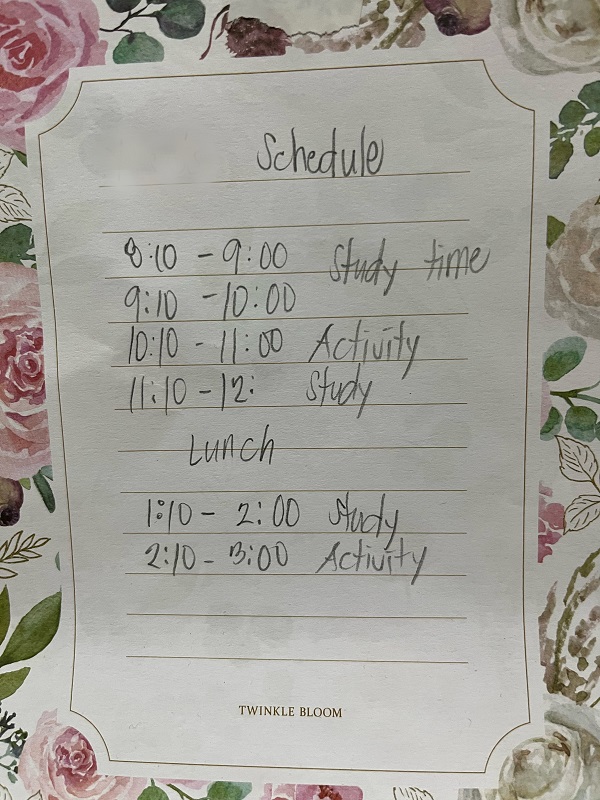 Schedule
8:10 - 9:00 Study time
9:10 - 10:00
10:10 - 11:00 Activity
11:10 - 12: Study
Lunch
1:10 - 2:00 Study
2:10 - 3:00 Activity
TWINKLE BLOOM